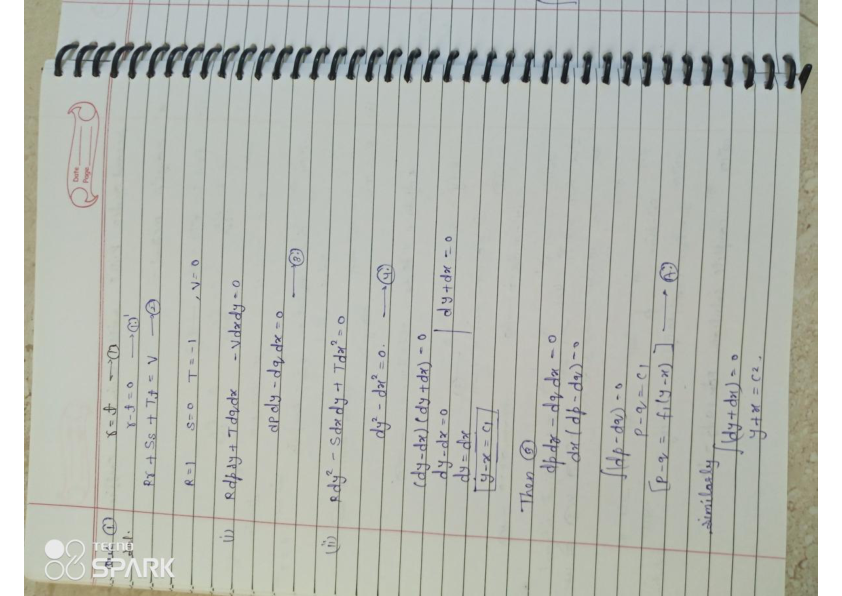 Date
Page
Que ①
r = t → ①
Sol.
r - t = 0 → ①'
Rr + Ss + Tt = V → ②
R = 1 S = 0 T = -1 , V = 0
(i) Rdpdy + Tdqdx - Vdxdy = 0
dpdy - dqdx = 0 → ③
(ii) Rdy² - Sdxdy + Tdx² = 0
dy² - dx² = 0. → ④
(dy-dx)(dy+dx) = 0
dy-dx = 0 | dy+dx = 0
dy = dx
y-x = c₁
Then ③
dpdx - dqdx = 0
dx(dp-dq) = 0
∫(dp-dq) = 0
p-q = c₁
[p-q = f₁(y-x)] →
similarly
∫(dy+dx) = 0
y+x = c₂.
TECNO
SPARK